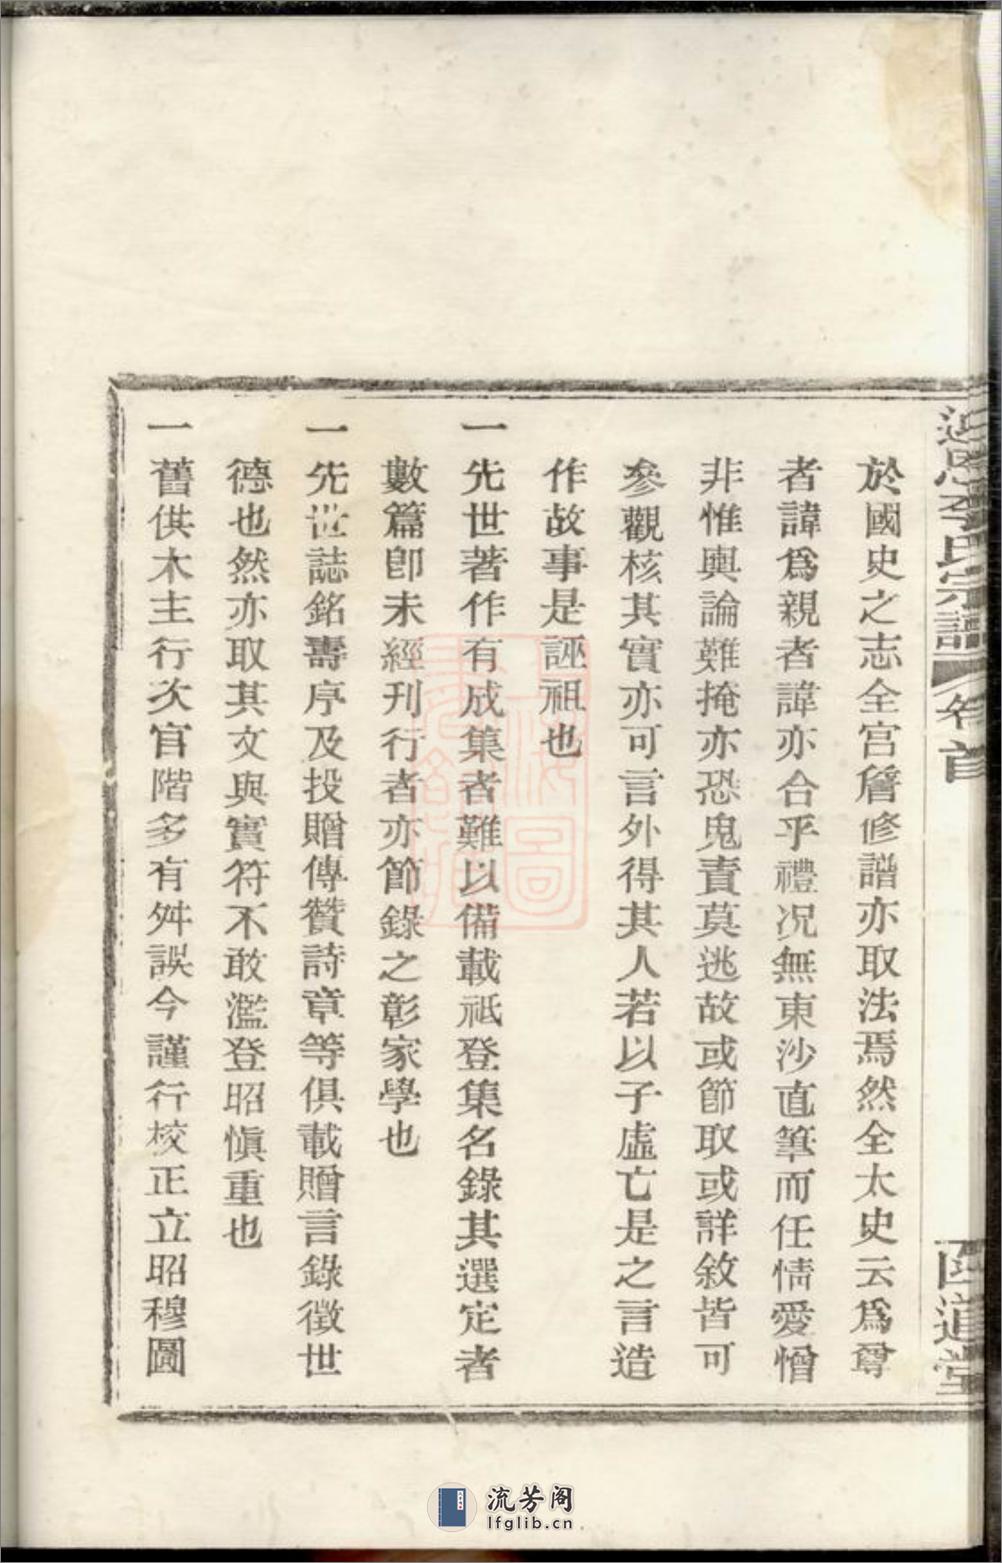 李氏宗譜 卷首 道堂
於國史之志全宮詹修譜亦取法焉然全太史云爲尊
者諱爲親者諱亦合乎禮况無東沙直筆而任情愛憎
非惟輿論難掩亦恐鬼責莫逃故或節取或詳敘皆可
參觀核其實亦可言外得其人若以子虛亡是之言造
作故事是誣祖也
一先世著作有成集者難以備載祇登集名錄其選定者
數篇卽未經刊行者亦節錄之彰家學也
一先世誌銘壽序及投贈傳贊詩章等俱載贈言錄徵世
德也然亦取其文與實符不敢濫登昭愼重也
一舊供木主行次官階多有舛誤今謹行校正立昭穆圖
流芳阁
lfglib.cn